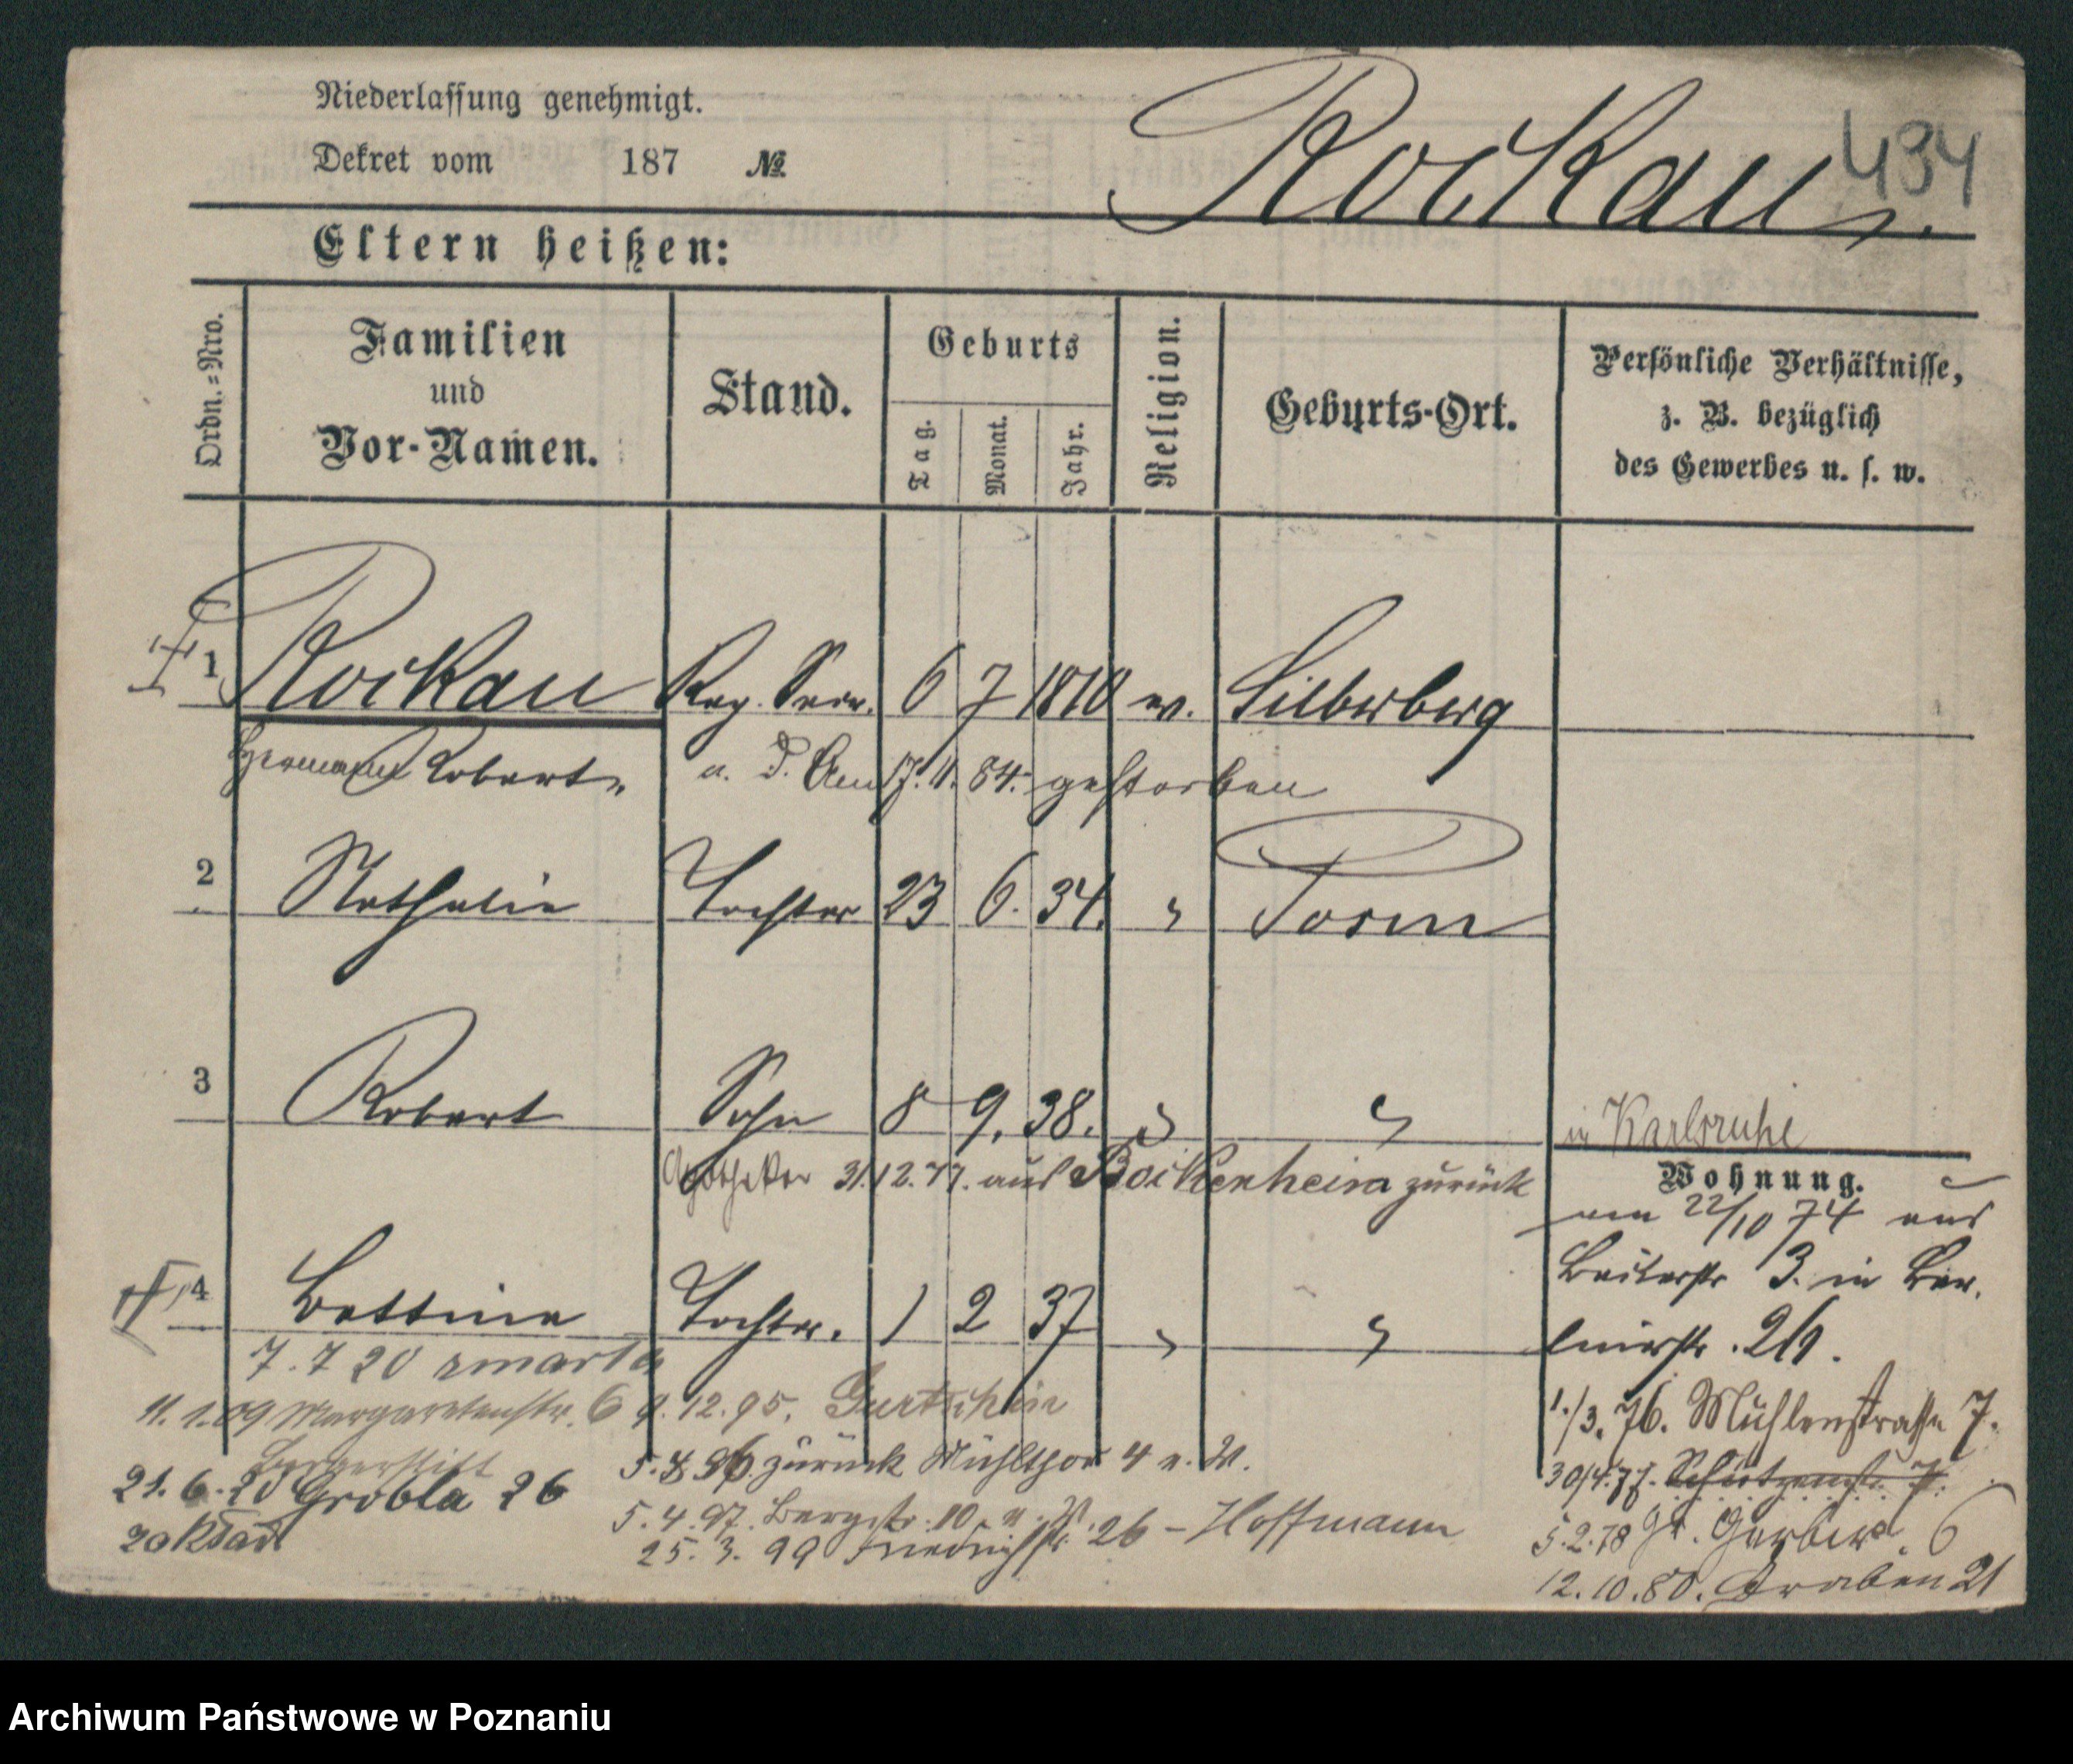 Niederlassung genehmigt.
Dekret vom 187 №
Rockau.
434
Eltern heißen:
Ordn.=Nro.
Familien
und
Vor-Namen.
Stand.
Geburts
Tag.
Monat.
Jahr.
Religion.
Geburts-Ort.
Persönliche Verhältnisse,
z. B. bezüglich
des Gewerbes u. s. w.
1 Rockau Reg. Secr. 6 7 1810 ev. Silberberg
Hermann Robert
a. D. Am 17.11.84. gestorben
2 Nathalie Tochter 23 6. 34. " Posen
3 Robert Sohn 8 9. 38. " "
in Karlsruhe
Apotheker 31.12.77. aus Bockenheim zurück
Wohnung.
am 22/10 74 aus
4 Bettina Tochter. 1 2 37 " "
3. in Ber-
linerstr.
7.7 20 zmarła
11.1.09 Margarethenstr. 6
9.12.95.
1./3.76. Mühlenstraße 7.
zurück Mühlthor 4
30/4.77. Schützenstr. 7.
21.6.20 Grobla 26
zakład
5.4.97. Bergstr. 10
5.2.78 Gr. Gerberst. 6
25.3.99 Friedrichstr. 26 - Hoffmann
12.10.80. Graben 21
Archiwum Państwowe w Poznaniu